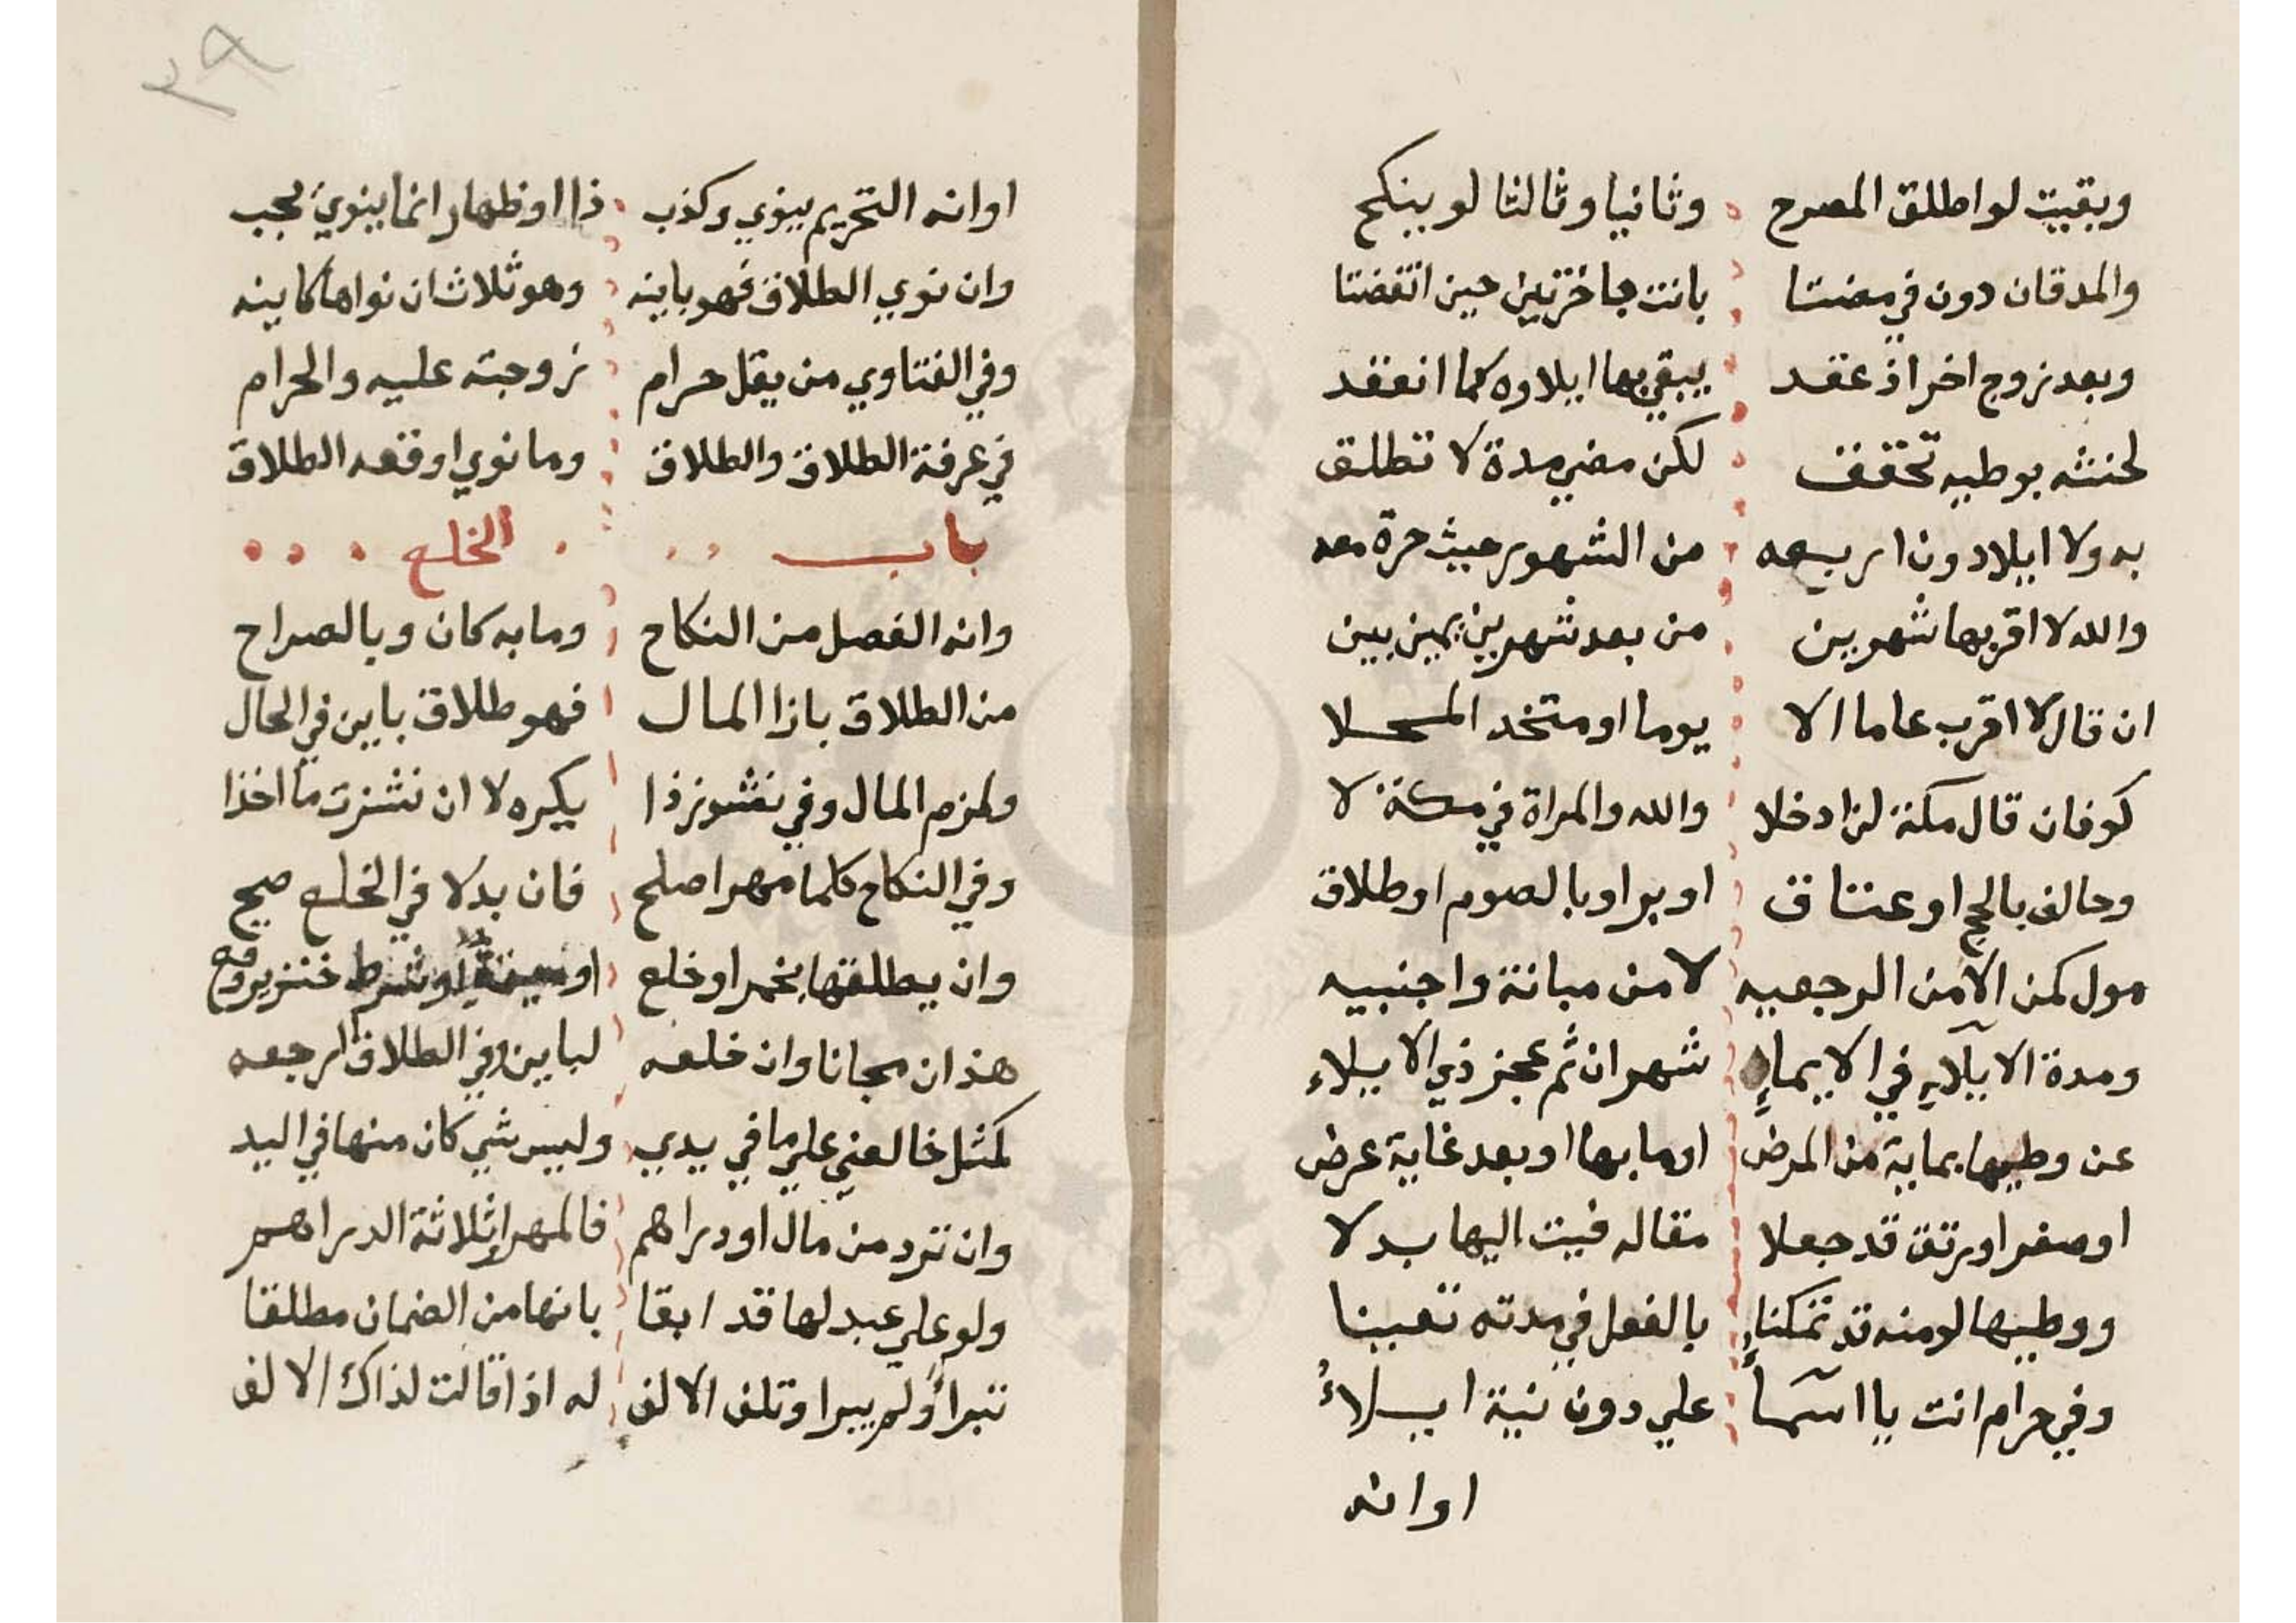 وبقيت لو اطلق المصرح وثانيا وثالثا لو ينكح
والمدقان دون في مضتا بانت باخرتين حين انقضتا
وبعد زوج اخر اذ عقد يبقي بها ايلاوه كما انعقد
لحنثه بوطيه تحقق لكن مضي مدة لا تطلق
به ولا ايلا دون اربعه من الشهور حيث حرة معه
والله لا اقربها شهرين من بعد شهرين يمين بين
ان قال لا اقرب عاما الا يوما او متخد المحلا
كوفان قال مكة لن ادخلا والله والمراة في مكة لا
وحالف بالحج او عتاق او برا وبالصوم او طلاق
مول كمن الا من الرجعيه لا من مبانة واجنبيه
ومدة الايلاء في الايماء شهران ثم عجز ذي الايلاء
عن وطيها بماية من المرض او ما بها او بعد غاية عرض
او صغر او رتق قد جعلا مقاله فيت اليها بدلا
ووطيها لو منه قد تمكنا بالفعل في مدته تعينا
وفي حرام انت يا اسماء علي دون نية ايلاء
او انه
٣٩
او انه التحريم ينوي وكذب ذا او ظهار انما ينوي يجب
وان نوي الطلاق فهو باينه وهو ثلاث ان نواها كاينه
وفي الفتاوي من يقل حرام زوجته عليه والحرام
في عرفة الطلاق والطلاق وما نوي اوقعه الطلاق
باب الخلع
وانه الفصل من النكاح وما به كان وبالصراح
من الطلاق بازا المال فهو طلاق باين في الحال
ولزم المال وفي نشوز ذا يكره لا ان نشزت ما اخذا
وفي النكاح كلما مهرا صلح فان بدلا في الخلع صح
وان يطلقها بخمر او خلع او خنزير وقع
هذان مجانا وان خلعه لباين وفي الطلاق الرجعه
كمثل خالعني علي ما في يدي وليس شي كان منها في اليد
وان تزد من مال او دراهم فالمهر او ثلاثة الدراهم
ولو علي عبد لها قد ابقا بانها من الضمان مطلقا
تبرا ولم يبرا وتلف الالف له اذا قالت لذاك الالف